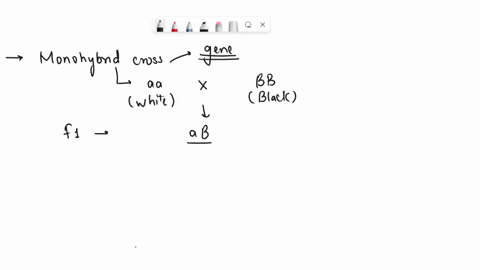 → Monohybrid cross gene
aa x BB
(white) (Black)
f1 → aB